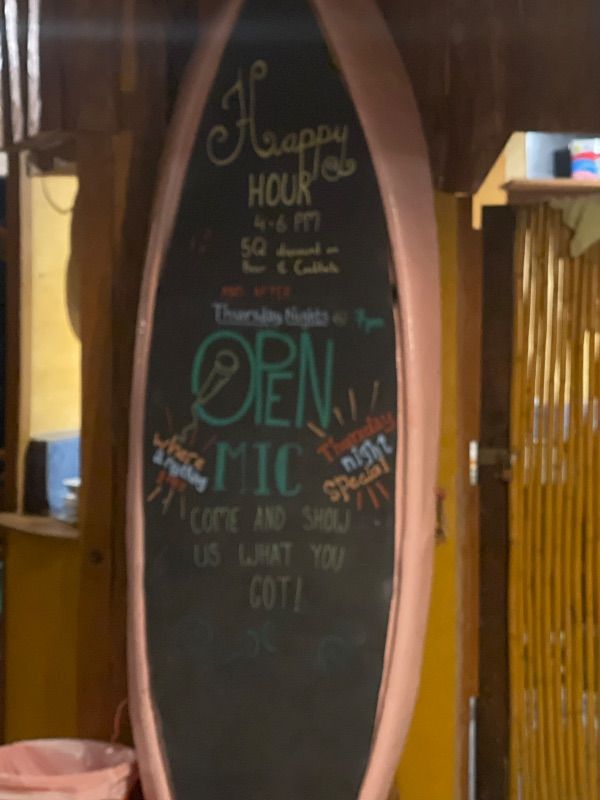 Happy
HOUR
4-6 PM
5Q discount on
Beer & Cocktails
AND AFTER
Thursday Nights @ 7pm
OPEN
MIC
where
anything
Thursday
night
special
COME AND SHOW
US WHAT YOU
GOT!